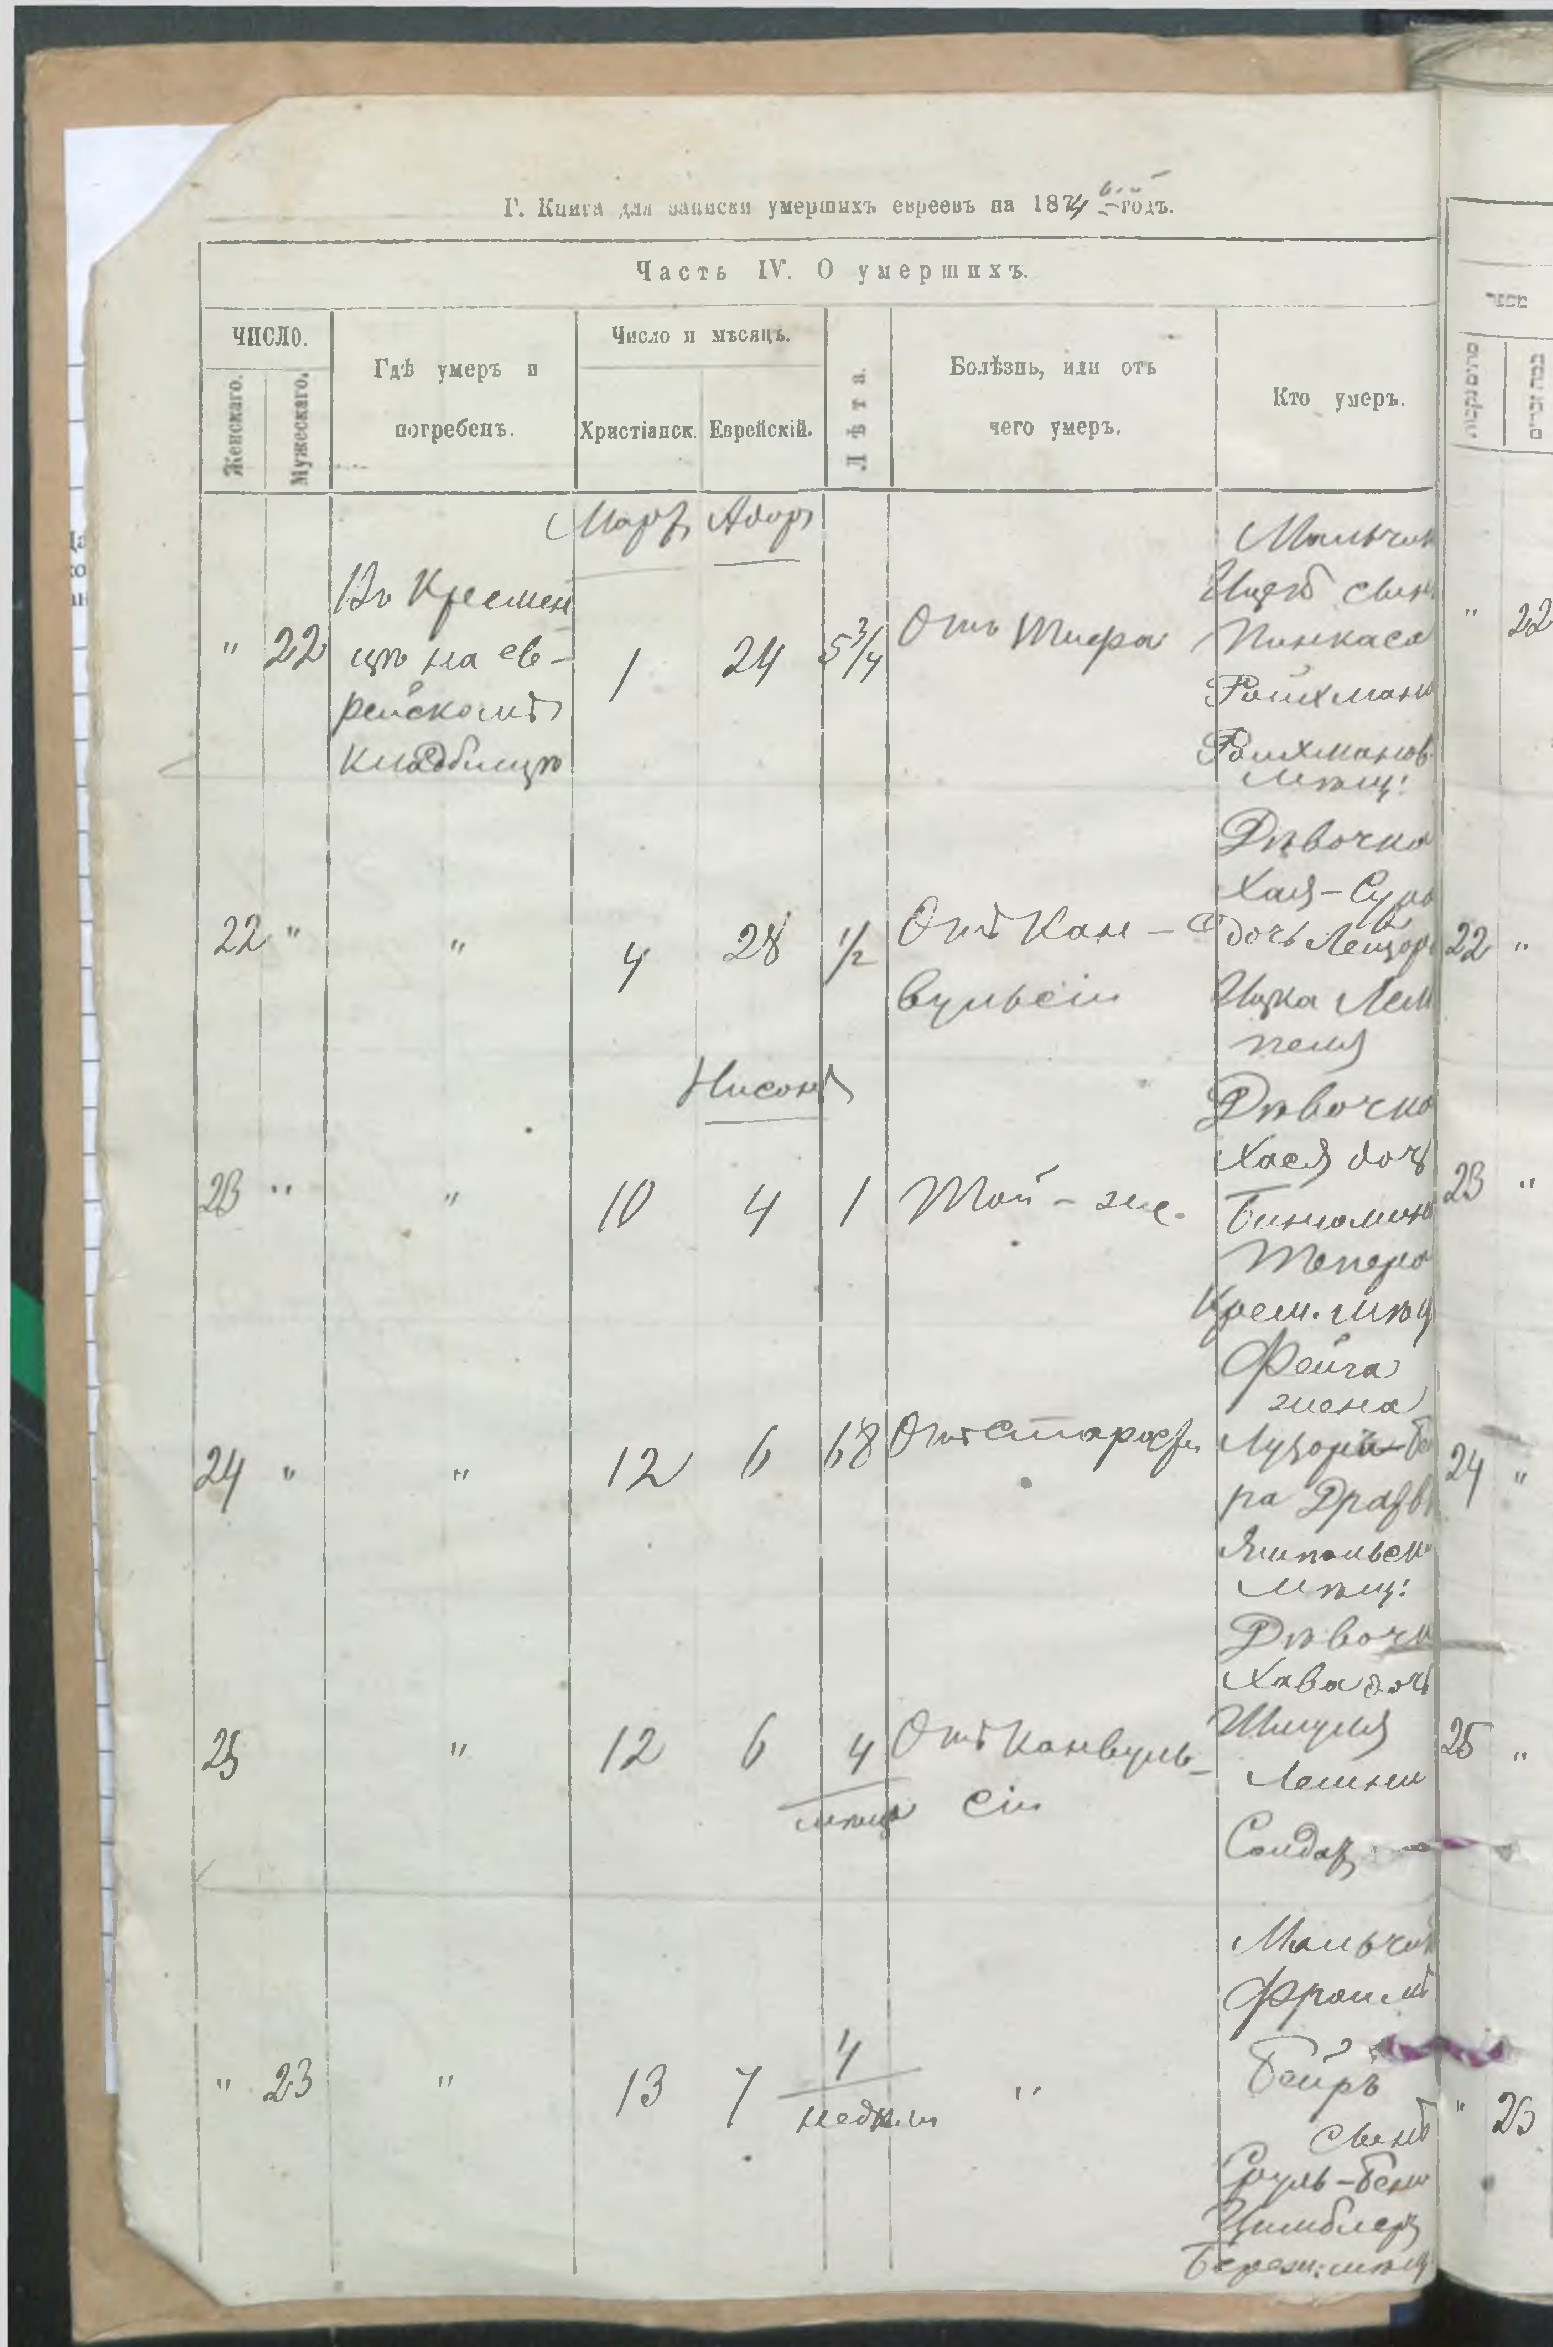 Г. Книга для записки умершихъ евреевъ на 1874 годъ.
Часть IV. О умершихъ.
ЧИСЛО.
Женскаго.
Мужескаго.
Гдѣ умеръ и
погребенъ.
Число и мѣсяцъ.
Христіанск.
Еврейскій.
Лѣта.
Болѣзнь, или отъ
чего умеръ.
Кто умеръ.
Мартъ Адаръ
" 22
Въ Кремен
цѣ на ев-
рейскомъ
кладбищѣ
1 24 5 3/4
Отъ тифа
Мальчик
Ицко сынъ
Пинкаса
Ройхмана
мѣщ:
" 22
22 " " 4 28 1/2
Отъ Кон-
вульсіи
Дѣвочка
Хая-Сура
дочь Лейзора
Ицка Лем
пеля
22 "
Нисонъ
23 " " 10 4 1
Той-же.
Дѣвочка
Хася дочь
Биніомина
Тепера
Крем. мѣщ
23 "
24 " " 12 6 68
Отъ старости
Фейга
жена
Лузоръ-Бе
ра
Ямпольск
мѣщ:
24 "
25 " 12 6 4
мѣсяц
Отъ Конвуль-
сіи
Дѣвочк
Хава дочь
Шмуля
Солдат
25 "
" 23 " 13 7 4
недѣли
"
Мальчик
Фроимъ
Бейръ
сынъ
Сруль-Бени
Цимблеръ
Береж: мѣщ
" 23